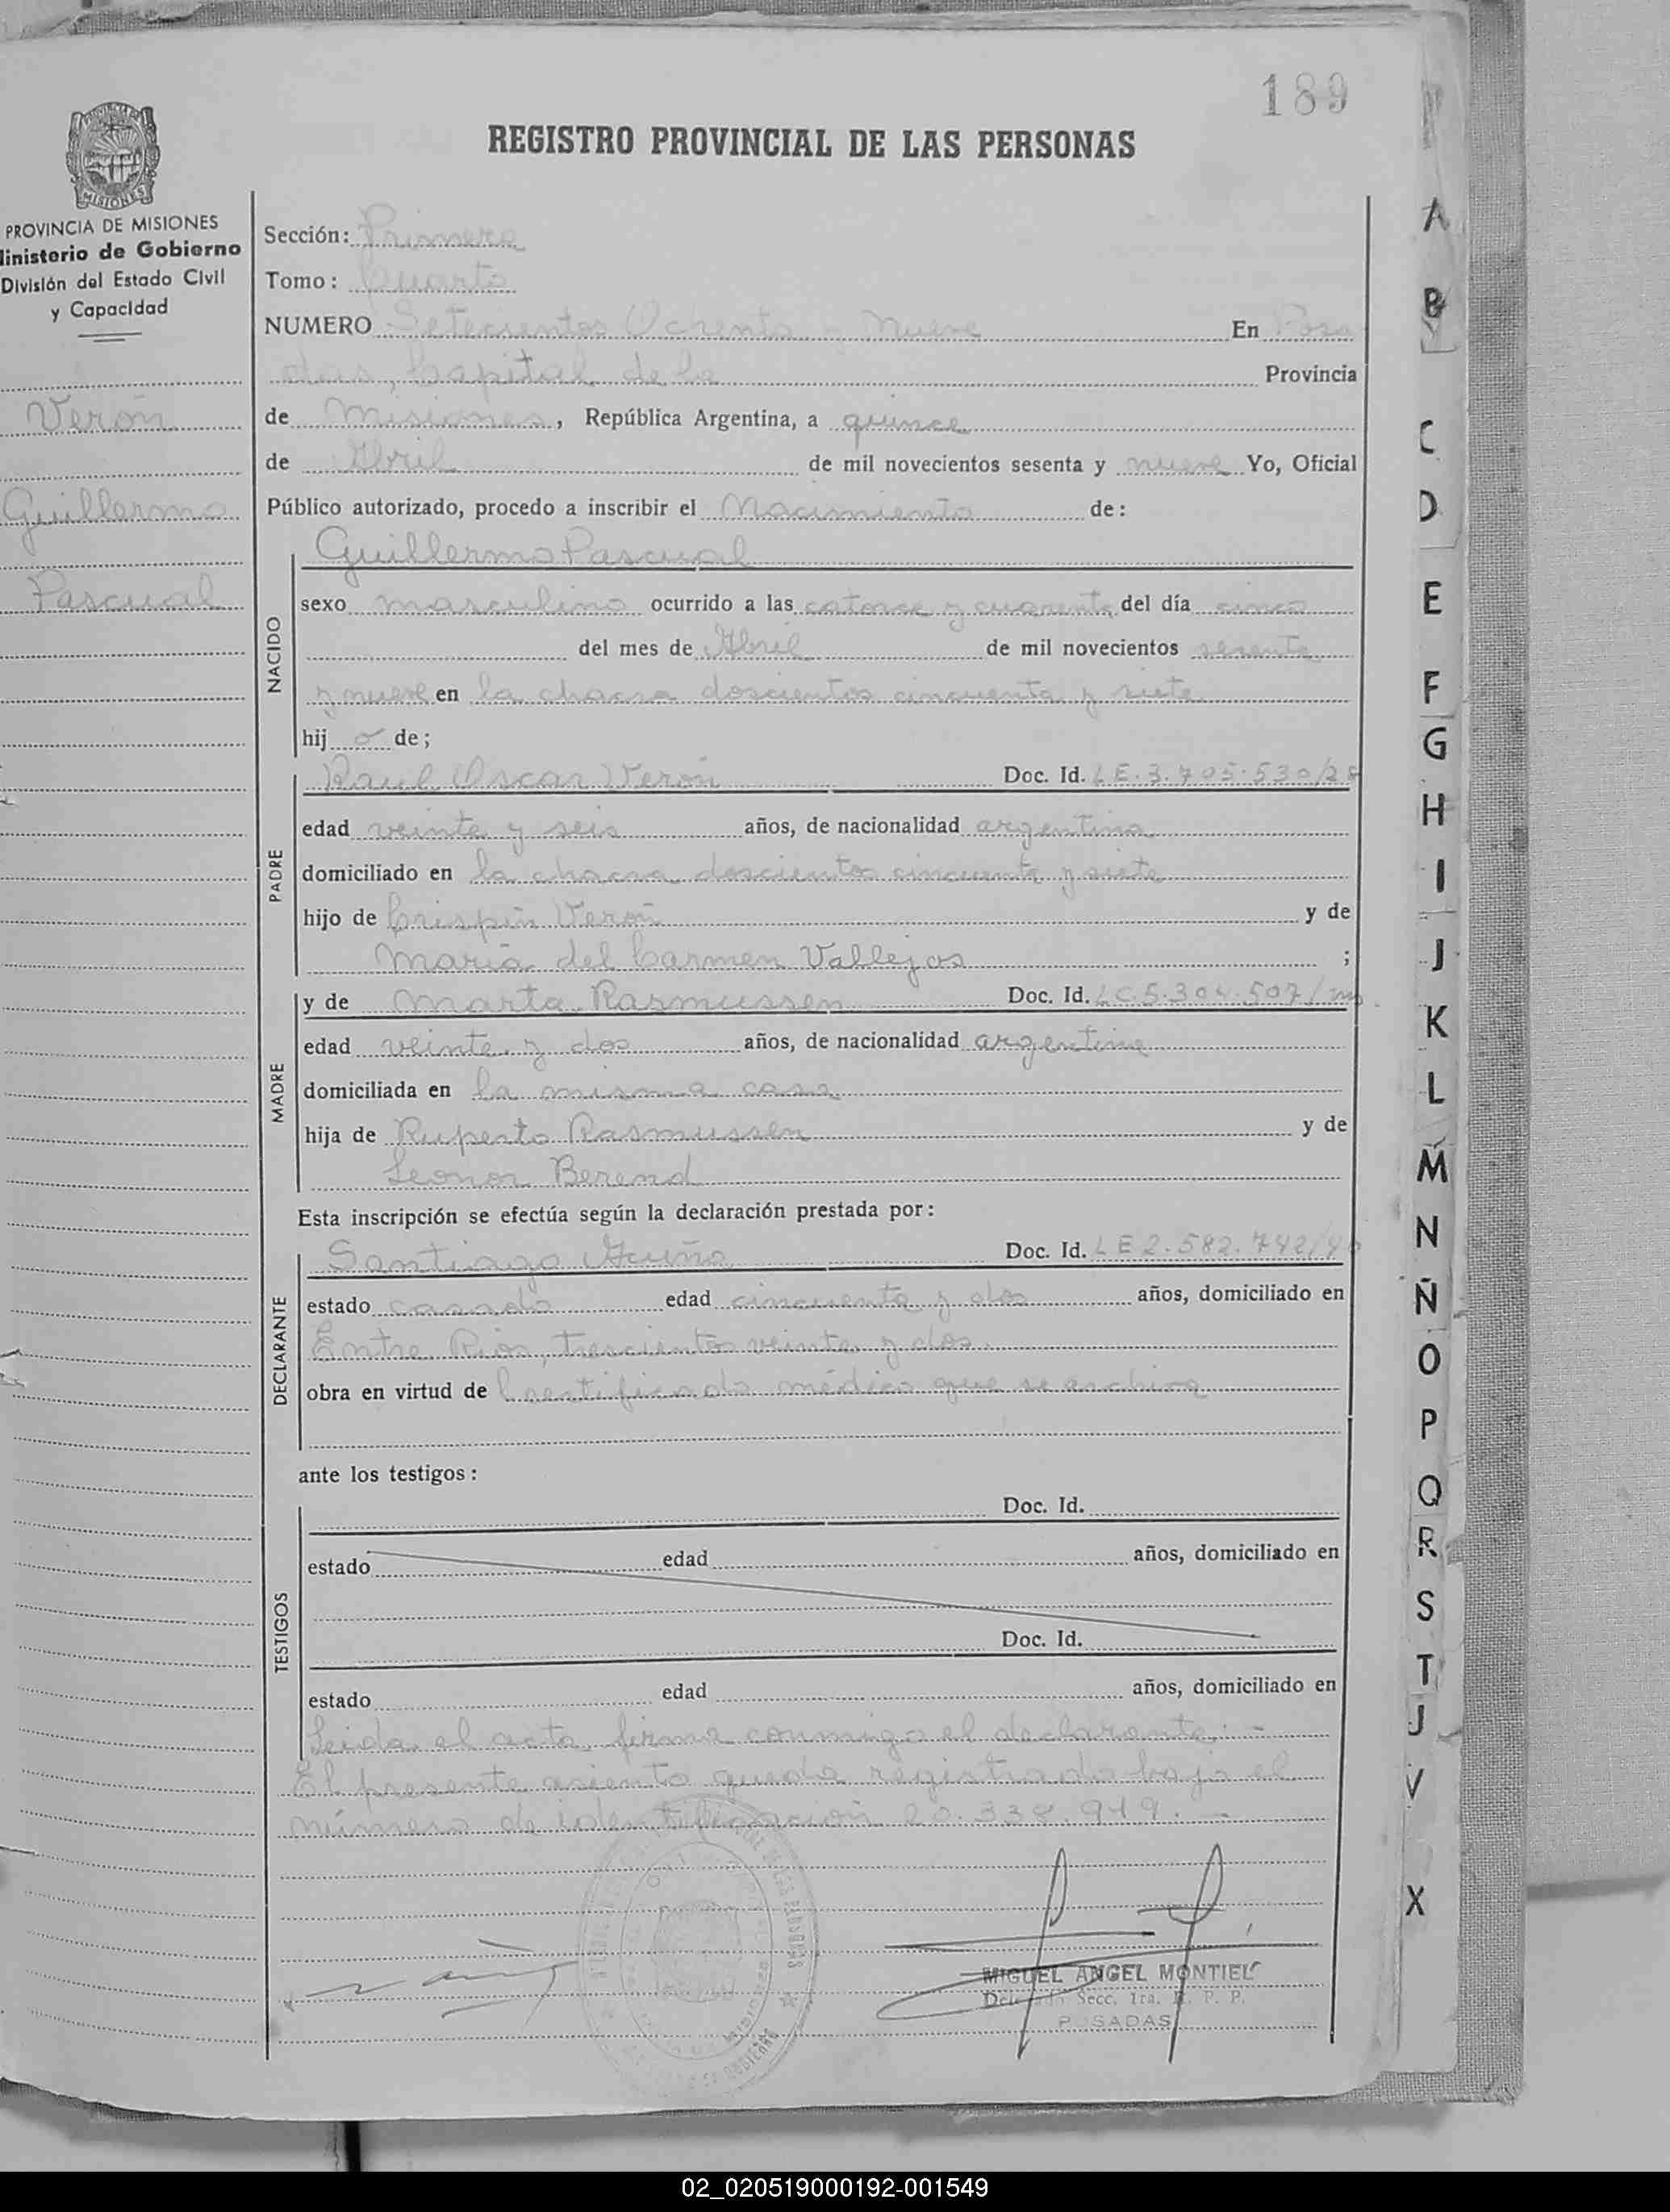 189
REGISTRO PROVINCIAL DE LAS PERSONAS
MISIONES
PROVINCIA DE MISIONES
inisterio de Gobierno
División del Estado Civil
y Capacidad
Verón
Guillermo
Pascual
Sección: Primera
Tomo: Cuarto
NUMERO Setecientos Ochenta y Nueve En Posa
das, Capital de la Provincia
de Misiones, República Argentina, a quince
de Abril de mil novecientos sesenta y nueve Yo, Oficial
Público autorizado, procedo a inscribir el Nacimiento de:
NACIDO
Guillermo Pascual
sexo masculino ocurrido a las catorce y cuarenta del día cinco
del mes de Abril de mil novecientos sesenta
y nueve en la chacra doscientos cincuenta y siete
hijo de;
PADRE
Raul Oscar Verón Doc. Id. LE. 3.705.530/
edad veinte y seis años, de nacionalidad argentina
domiciliado en la chacra doscientos cincuenta y siete
hijo de Crispín Verón y de
María del Carmen Vallejos ;
MADRE
y de Marta Rasmussen Doc. Id. LC. 5.304.507/
edad veinte y dos años, de nacionalidad argentina
domiciliada en la misma casa
hija de Ruperto Rasmussen y de
Leonor Berend
Esta inscripción se efectúa según la declaración prestada por:
DECLARANTE
Santiago Acuña Doc. Id. LE 2.582.742/
estado casado edad cincuenta y dos años, domiciliado en
Entre Rios, trescientos veinte y dos
obra en virtud de Certificado médico que se archiva
ante los testigos:
TESTIGOS
Doc. Id.
estado edad años, domiciliado en
Doc. Id.
estado edad años, domiciliado en
Leida el acta, firma conmigo el declarante. -
El presente asiento queda registrado bajo el
número de identificación 20.338.919. -
MIGUEL ANGEL MONTIEL
Delegado Secc. 1ra. R. P. P.
POSADAS
A
B
C
D
E
F
G
H
I
J
K
L
M
N
Ñ
O
P
Q
R
S
T
U
V
X
02_020519000192-001549